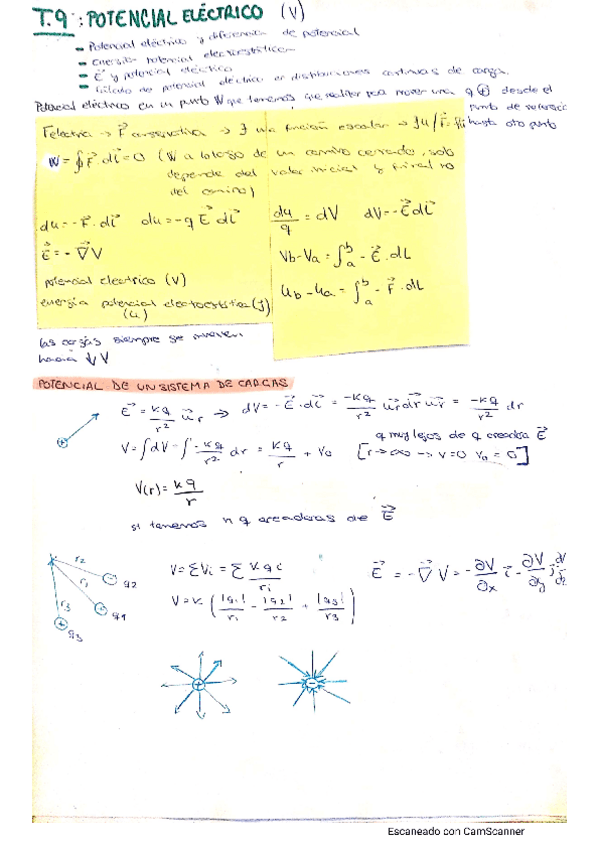 T.9: POTENCIAL ELÉCTRICO (V)
- Potencial eléctrico y diferencia de potencial
- Energía potencial electrostática
- E⃗ y potencial eléctrico
- Cálculo de potencial eléctrico en distribuciones continuas de carga.
Potencial eléctrico en un punto W que tenemos que realizar para mover una q ⊕ desde el
punto de referencia
hasta otro punto
F eléctrica → F⃗ conservativa → ∃ una función escalar →
W = ∮ F⃗ · dl⃗ = 0 (W a lo largo de un camino cerrado, solo
depende del valor inicial y final no
del camino)
du = -F⃗ · dl⃗ du = -q E⃗ dl⃗
du/q = dV dV = -E⃗ dl⃗
E⃗ = -∇⃗ V
Vb - Va = ∫ₐᵇ - E⃗ · dL
potencial electrico (V)
Ub - Ua = ∫ₐᵇ - F⃗ · dL
energía potencial electrostática (J)
(U)
las cargas siempre se mueven
hacia ↓ V
POTENCIAL DE UN SISTEMA DE CARGAS
E⃗ = kq/r² u⃗r → dV = -E⃗ · dl⃗ = -kq/r² u⃗r dr u⃗r = -kq/r² dr
q muy lejos de q creadora E⃗
V = ∫dV = ∫ -kq/r² dr = kq/r + V₀ [r → ∞ → V = 0 V₀ = 0]
V(r) = kq/r
si tenemos n q creadoras de E⃗
r2
r1
r3
q2
q1
q3
V = ΣVi = Σ k qi/ri
E⃗ = -∇⃗ V = -∂V/∂x i⃗ - ∂V/∂y j⃗ ∂V/∂z
V = k (|q1|/r1 - |q2|/r2 + |q3|/r3)
Escaneado con CamScanner